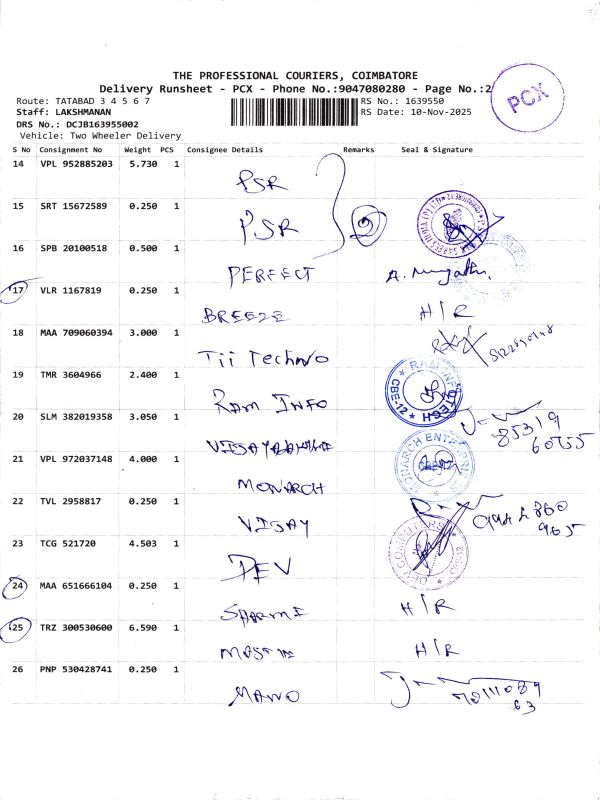 THE PROFESSIONAL COURIERS, COIMBATORE
Delivery Runsheet - PCX - Phone No.:9047080280 - Page No.:2
PCX
Route: TATABAD 3 4 5 6 7
RS No.: 1639550
Staff: LAKSHMANAN
RS Date: 10-Nov-2025
DRS No.: DCJB163955002
Vehicle: Two Wheeler Delivery
S No Consignment No Weight PCS Consignee Details Remarks Seal & Signature
14 VPL 952885203 5.730 1
PSR
15 SRT 15672589 0.250 1
PSR 2
16 SPB 20100518 0.500 1
PERFECT
17 VLR 1167819 0.250 1
BREEZE H/R
18 MAA 709060394 3.000 1
Tii Techno
19 TMR 3604966 2.400 1
RAM INFO
CBE-12
20 SLM 382019358 3.050 1
85319
21 VPL 972037148 4.000 1
MONARCH
MONARCH ENTERPRISES
22 TVL 2958817 0.250 1
VIJAY
23 TCG 521720 4.503 1
DEV
DEV COMPUTERS
24 MAA 651666104 0.250 1
SHARMI H/R
25 TRZ 300530600 6.590 1
H/R
26 PNP 530428741 0.250 1
MANO
63